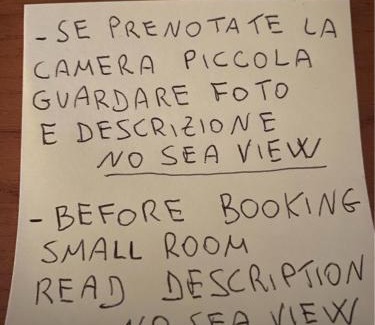 - SE PRENOTATE LA
CAMERA PICCOLA
GUARDARE FOTO
E DESCRIZIONE
NO SEA VIEW
- BEFORE BOOKING
SMALL ROOM
READ DESCRIPTION
NO SEA VIEW